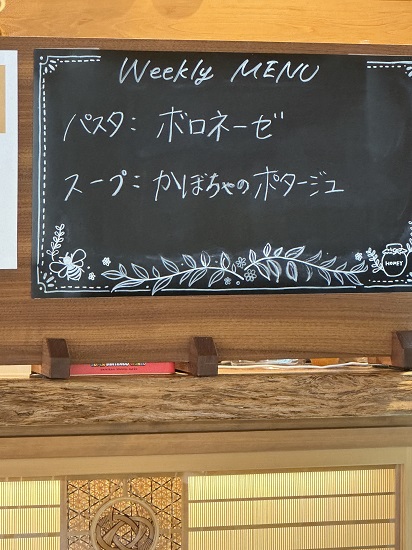 Weekly MENU
パスタ: ボロネーゼ
スープ: かぼちゃのポタージュ
HONEY